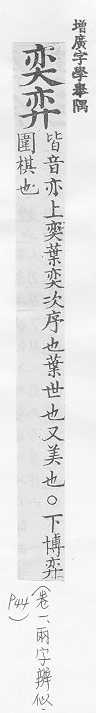 增廣字學舉隅
奕弈
皆音亦上奕葉奕次序也葉世也又美也○下博弈
圍棋也
(卷一、兩字辨似、
P44)